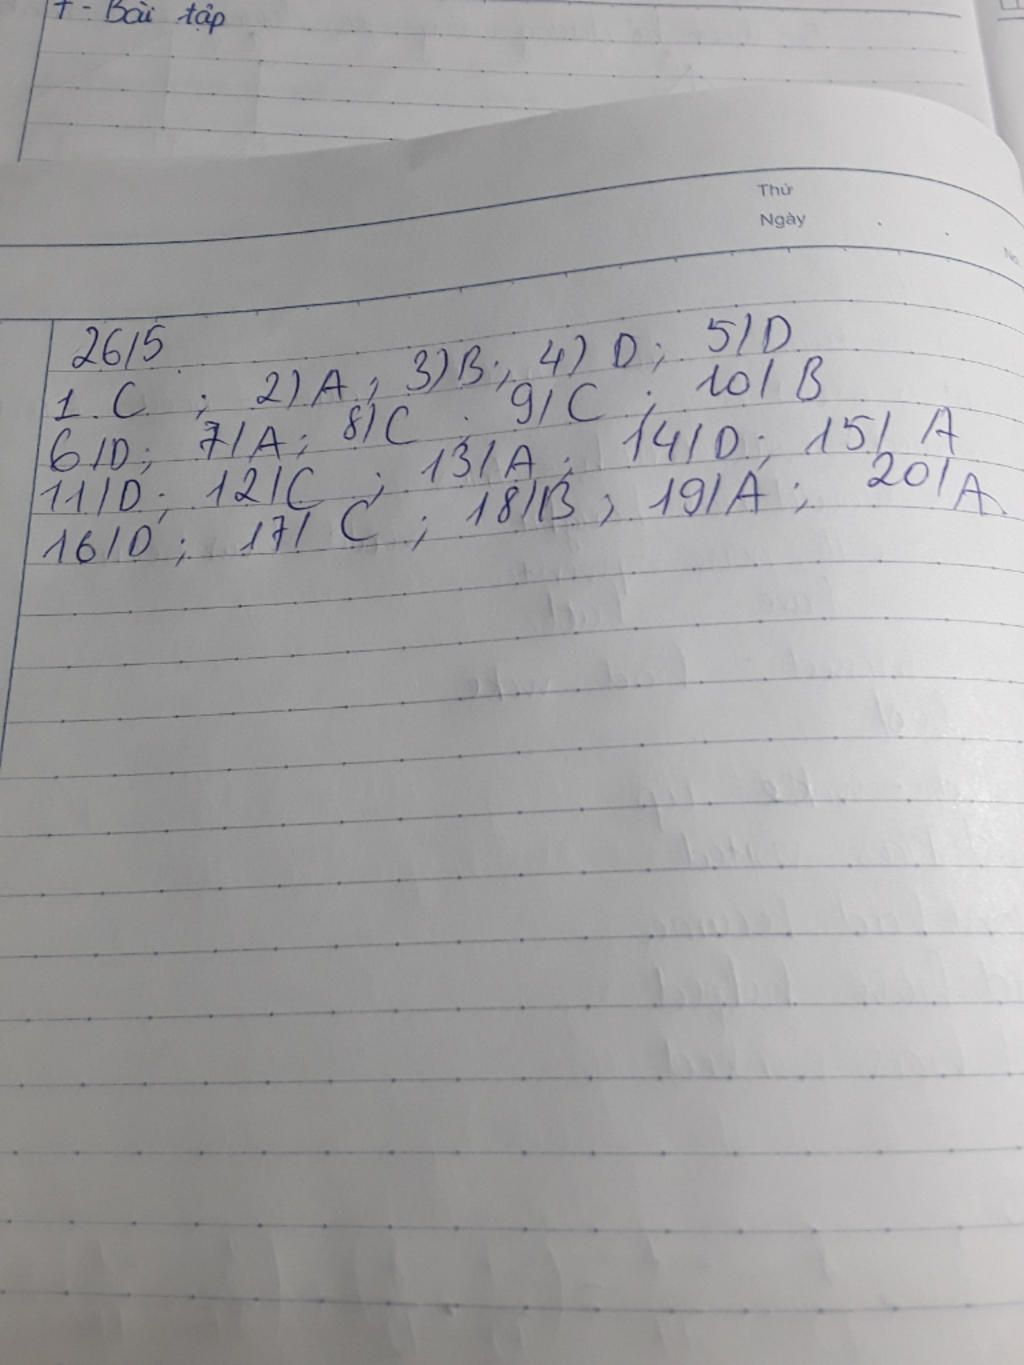 I - Bài tập
Thứ
Ngày
No.
26/5
1. C ; 2) A ; 3) B ; 4) D ; 5/D
6/D ; 7/A ; 8/C ; 9/C ; 10/ B
11/D ; 12/C ; 13/A ; 14/D ; 15/ A
16/D ; 17/ C ; 18/B ; 19/A ; 20/A